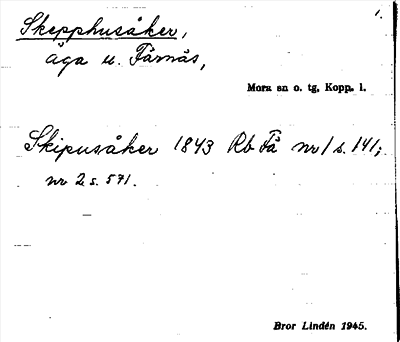 1.
Skepphusåker,
äga u. Färnäs,
Mora sn o. tg, Kopp. l.
Skipusåker 1843 Rb Fä nr 1 s. 141;
nr 2 s. 571.
Bror Lindén 1945.